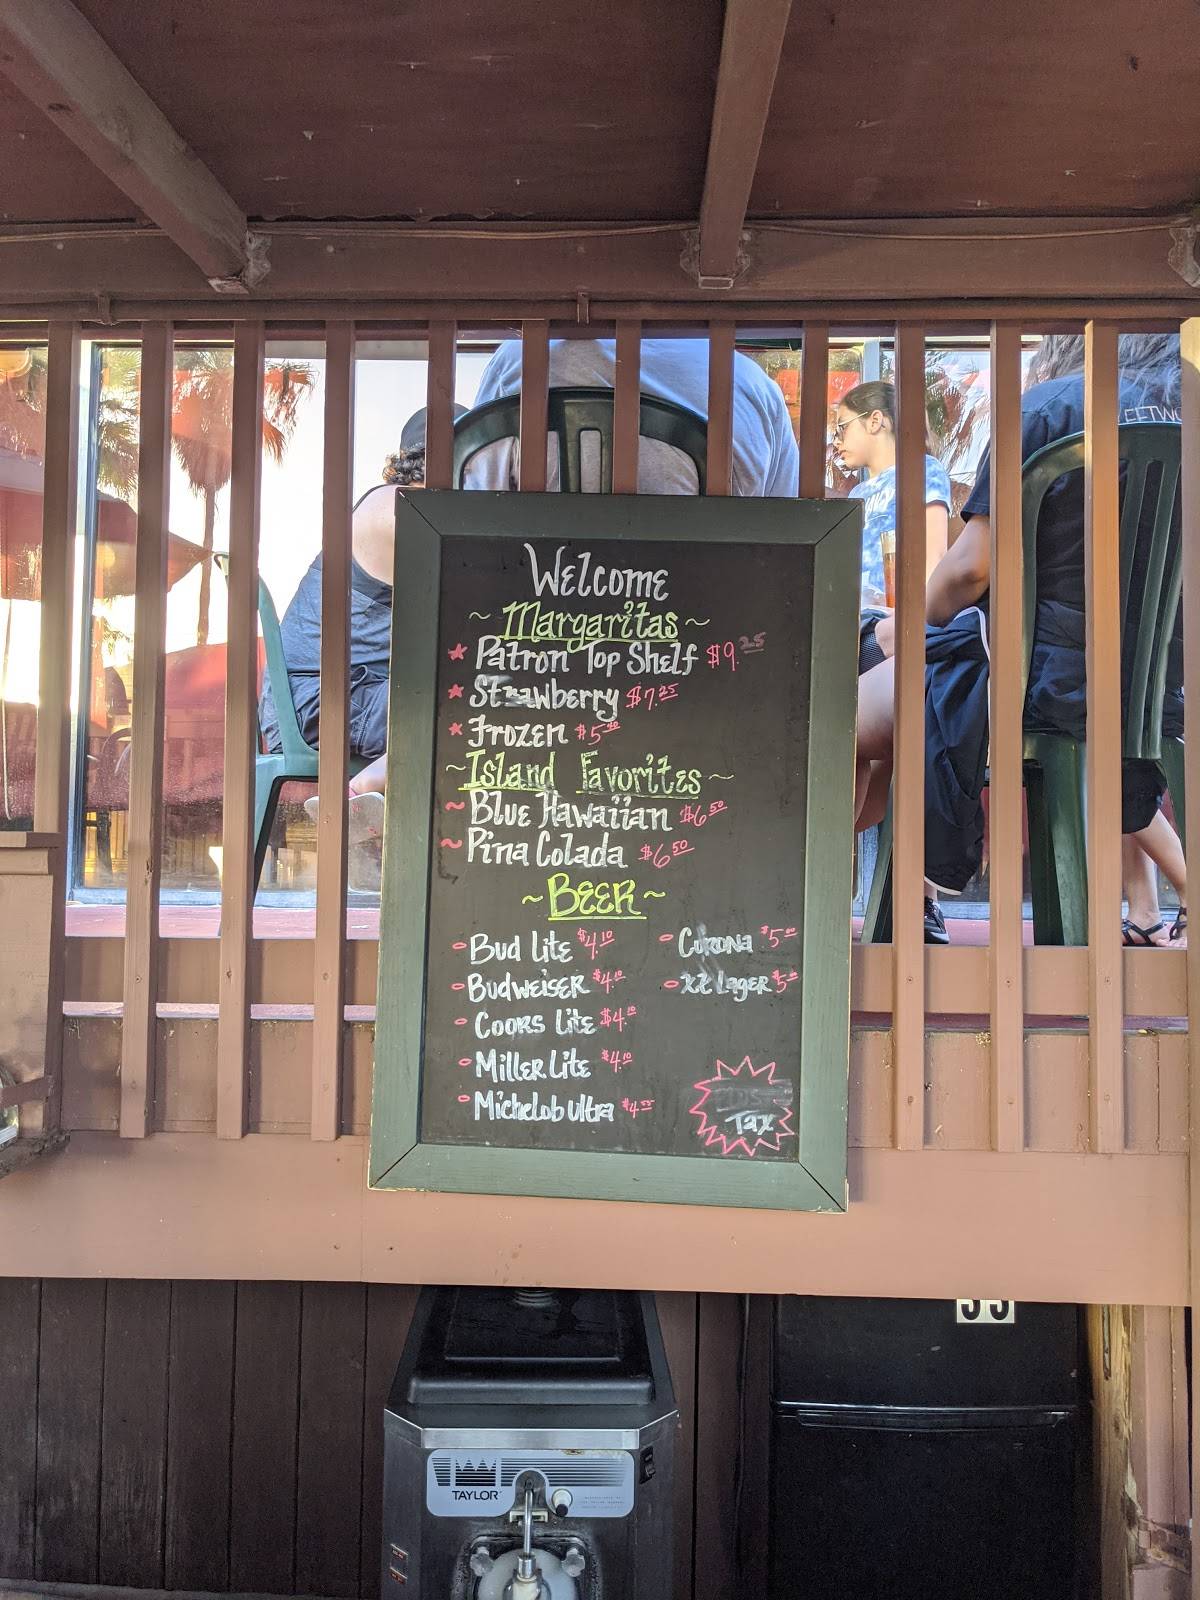 Welcome
~ Margaritas ~
* Patron Top Shelf $9.25
* Strawberry $7.25
* Frozen $5.40
~ Island Favorites ~
~ Blue Hawaiian $6.50
~ Pina Colada $6.50
~ Beer ~
Bud Lite $4.10
Budweiser $4.10
Coors Lite $4.10
Miller Lite $4.10
Michelob Ultra
Corona
XX Lager
Tax
TAYLOR